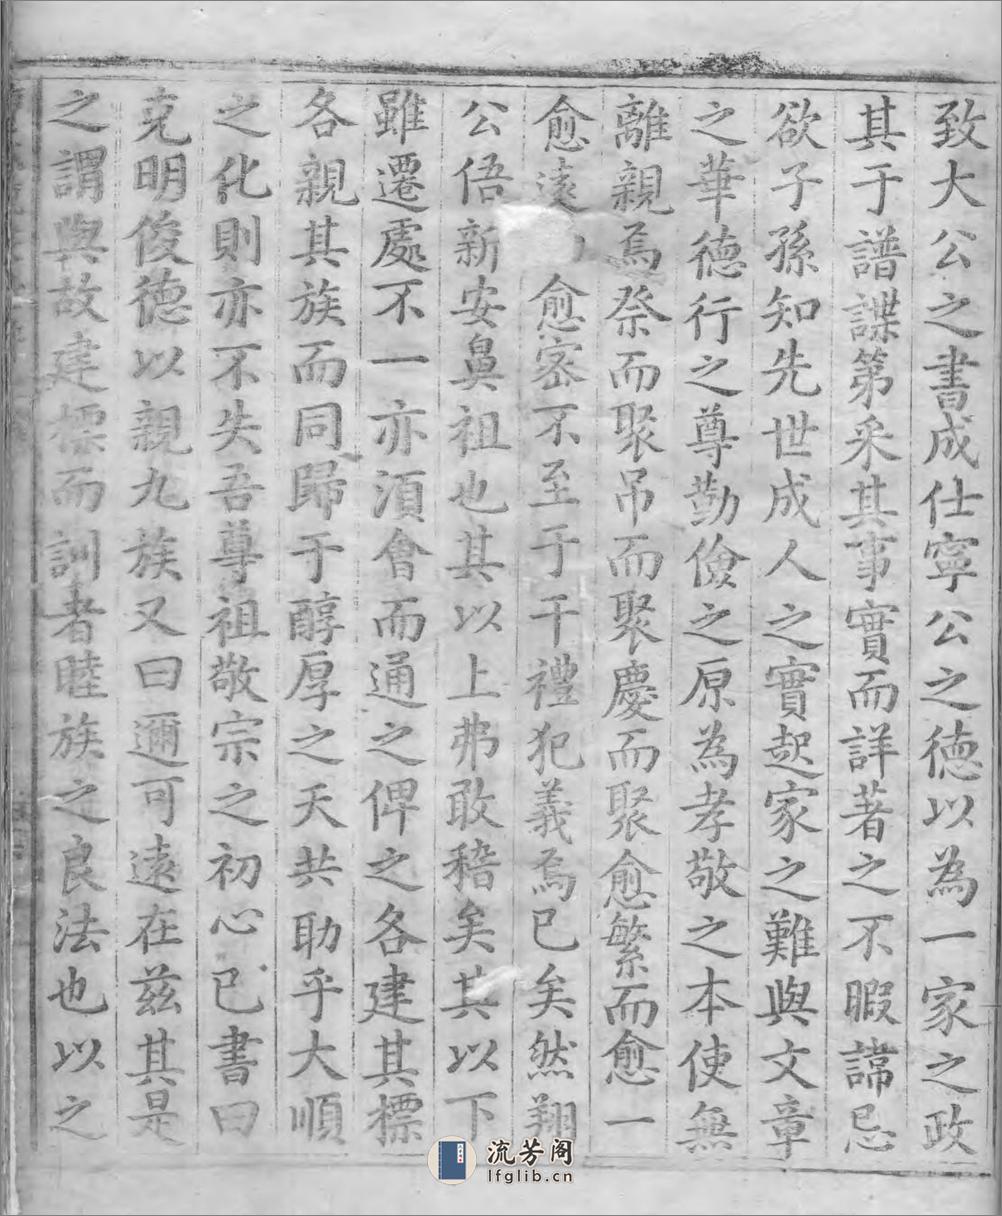 致大公之書成仕寧公之德以為一家之政
其于譜諜第采其事實而詳著之不暇諱忌
欲子孫知先世成人之實起家之難與文章
之華德行之尊勤儉之原為孝敬之本使無
離親焉祭而聚吊而聚慶而聚愈繁而愈一
愈遠愈密不至于干禮犯義焉已矣然翔
公俉新安鼻祖也其以上弗敢稽矣其以下
雖遷處不一亦湏會而通之俾之各建其標
各親其族而同歸于醇厚之天共助乎大順
之化則亦不失吾尊祖敬宗之初心已書曰
克明俊德以親九族又曰邇可遠在茲其是
之謂與故建標而訓者睦族之良法也以之
流芳阁
lfglib.cn